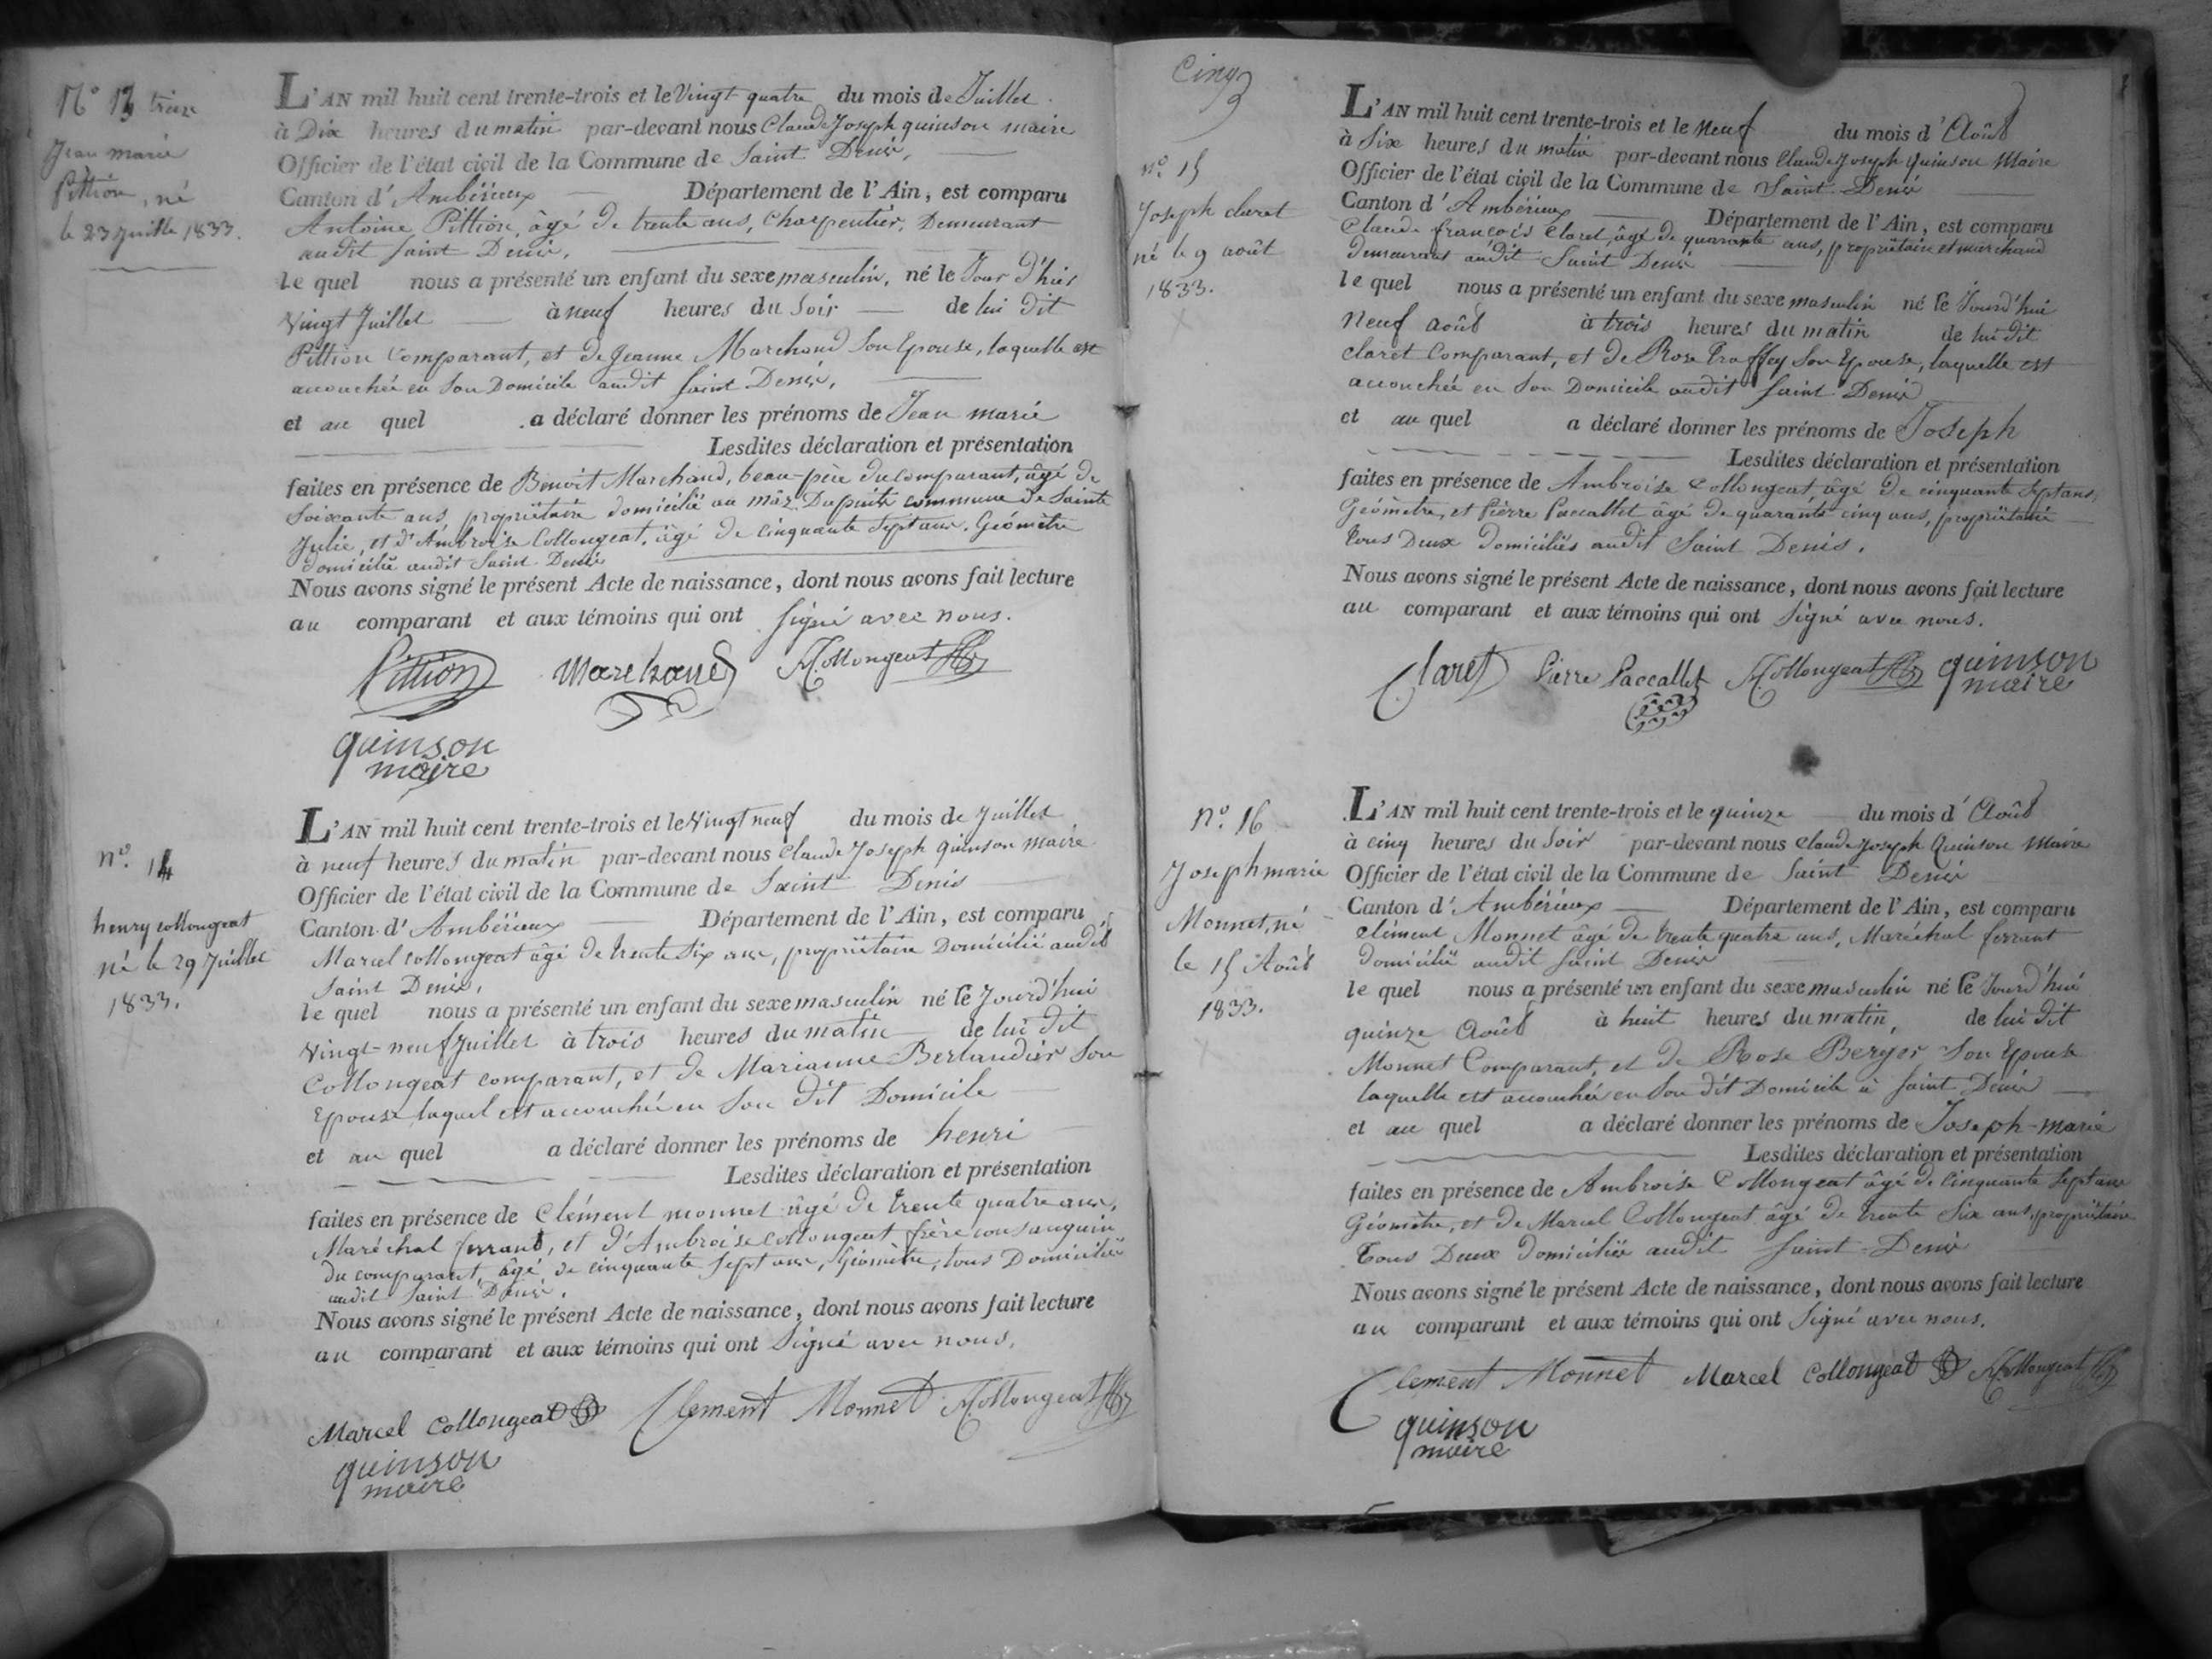 N° 13 treize
Jean marie
Pittion, né
le 23 Juillet 1833.
L'AN mil huit cent trente-trois et le Vingt quatre du mois de Juillet
à Dix heures du matin par-devant nous Claude Joseph quinson maire
Officier de l'état civil de la Commune de Saint Denis,
Canton d'Ambérieux Département de l'Ain, est comparu
Antoine Pittion, âgé de trente ans, Charpentier, Demeurant
audit Saint Denis,
le quel nous a présenté un enfant du sexe masculin, né le Jour d'hier
Vingt Juillet à neuf heures du Soir de lui dit
Pittion Comparant, et de Jeanne Marchand Son Epouse, laquelle est
accouchée en Son Domicile audit Saint Denis,
et au quel a déclaré donner les prénoms de Jean marie
Lesdites déclaration et présentation
faites en présence de Benoit Marchand, beau-père du comparant, âgé de
Soixante ans, propriétaire domicilié au mâz Dupuits commune de Sainte
Julie, et d'Ambroise Collongeat, âgé de cinquante Sept ans, Géomètre
domicilié audit Saint Denis
Nous avons signé le présent Acte de naissance, dont nous avons fait lecture
au comparant et aux témoins qui ont Signé avec nous.
Pittion Marchand A. Collongeat
quinson
maire
n°. 14
henry collongeat
né le 29 Juillet
1833.
L'AN mil huit cent trente-trois et le Vingt neuf du mois de Juillet
à neuf heures du matin par-devant nous Claude Joseph quinson maire
Officier de l'état civil de la Commune de Saint Denis
Canton d'Ambérieux Département de l'Ain, est comparu
Marcel collongeat âgé de trente Six ans, propriétaire Domicilié audit
Saint Denis,
le quel nous a présenté un enfant du sexe masculin né le Jourd'hui
Vingt-neuf Juillet à trois heures du matin de lui dit
Collongeat comparant, et de Marianne Berlandier Son
Epouse, laquel est accouchée en Son dit Domicile
et au quel a déclaré donner les prénoms de henri
Lesdites déclaration et présentation
faites en présence de Clément monnet âgé de trente quatre ans,
Maréchal ferrant, et d'Ambroise Collongeat frère consanguin
du comparant, âgé de cinquante Sept ans, Géomètre, tous Domiciliés
audit Saint Denis.
Nous avons signé le présent Acte de naissance, dont nous avons fait lecture
au comparant et aux témoins qui ont Signé avec nous.
Marcel Collongeat Clement Monnet A. Collongeat
quinson
maire
Cinq
n°. 15
Joseph claret
né le 9 août
1833.
L'AN mil huit cent trente-trois et le Neuf du mois d'Août
à Six heures du matin par-devant nous Claude Joseph quinson Maire
Officier de l'état civil de la Commune de Saint-Denis
Canton d'Ambérieux Département de l'Ain, est comparu
Claude françois Claret, âgé de quarante ans, propriétaire et marchand
demeurant audit Saint Denis
le quel nous a présenté un enfant du sexe masculin né le Jourd'hui
Neuf août à trois heures du matin de lui dit
Claret Comparant, et de Rose Son Epouse, laquelle est
accouchée en Son Domicile audit Saint Denis
et au quel a déclaré donner les prénoms de Joseph
Lesdites déclaration et présentation
faites en présence de Ambroise Collongeat âgé de cinquante Sept ans,
Géomètre, et Pierre Paccallet âgé de quarante cinq ans, propriétaire
tous Deux domiciliés audit Saint Denis.
Nous avons signé le présent Acte de naissance, dont nous avons fait lecture
au comparant et aux témoins qui ont Signé avec nous.
Claret Pierre Paccallet A. Collongeat quinson
maire
n°. 16
Joseph marie
Monnet, né
le 15 Août
1833.
L'AN mil huit cent trente-trois et le quinze du mois d'Août
à cinq heures du Soir par-devant nous Claude Joseph Quinson Maire
Officier de l'état civil de la Commune de Saint Denis
Canton d'Ambérieux Département de l'Ain, est comparu
clément Monnet âgé de trente quatre ans, Maréchal ferrant
domicilié audit Saint Denis
le quel nous a présenté un enfant du sexe masculin né le Jourd'hui
quinze Août à huit heures du matin, de lui dit
Monnet Comparant, et de Rose Berger Son Epouse
laquelle est accouchée en Son dit Domicile à Saint Denis
et au quel a déclaré donner les prénoms de Joseph-marie
Lesdites déclaration et présentation
faites en présence de Ambroise Collongeat âgé de Cinquante Sept ans
Géomètre, et de Marcel Collongeat âgé de trente Six ans, propriétaire
tous Deux domiciliés audit Saint-Denis
Nous avons signé le présent Acte de naissance, dont nous avons fait lecture
au comparant et aux témoins qui ont Signé avec nous.
Clement Monnet Marcel Collongeat A. Collongeat
quinson
maire